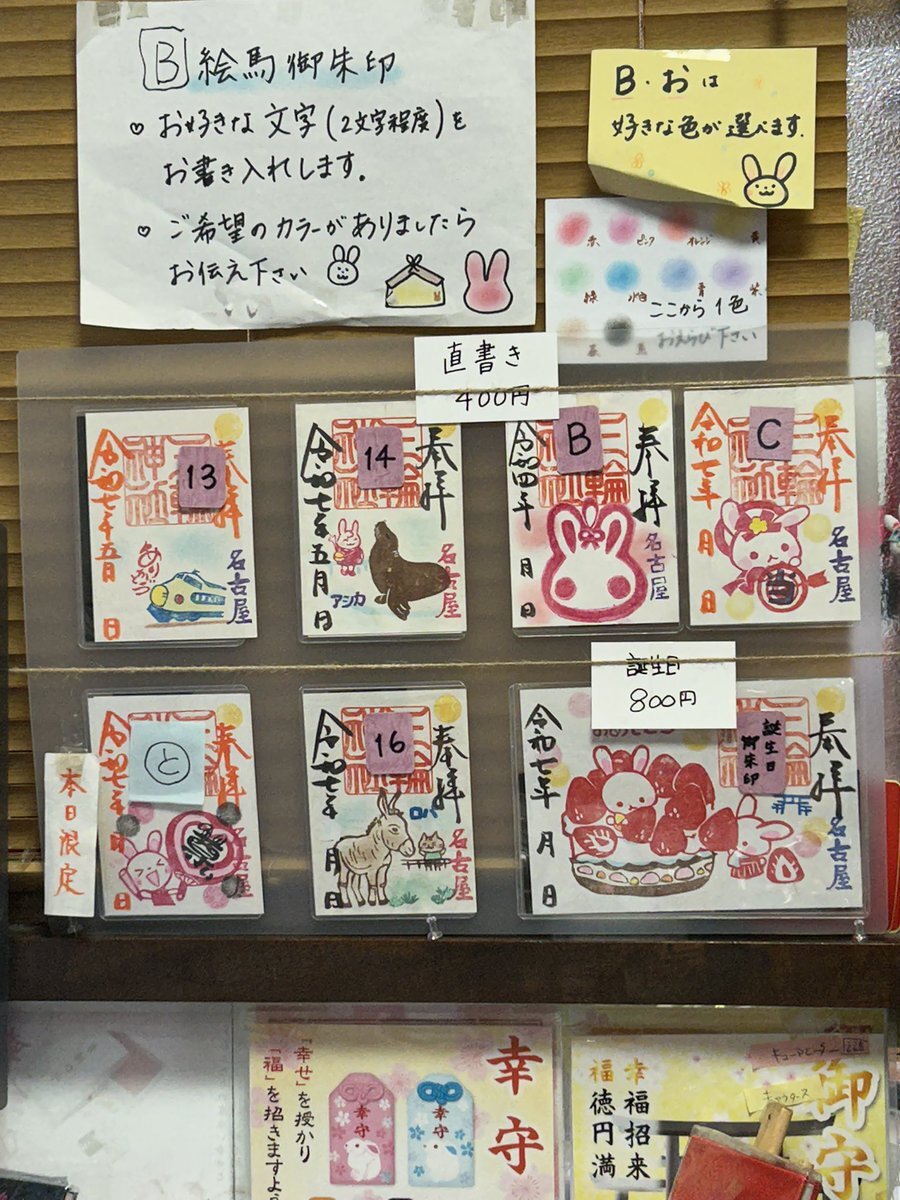 B 絵馬御朱印
お好きな文字(2文字程度)を
お書き入れします。
ご希望のカラーがありましたら
お伝え下さい
B・おは
好きな色が選べます。
赤 ピンク オレンジ 黄
緑 水色 青 紫
茶 黒
ここから1色
おえらび下さい
直書き
400円
奉拝
三輪神社
13
令和七年五月 日
名古屋
奉拝
三輪神社
14
令和七年五月 日
アシカ
名古屋
奉拝
三輪神社
B
令和四年 月 日
名古屋
奉拝
三輪神社
C
令和七年 月 日
名古屋
誕生日
800円
本日限定
奉拝
と
令和七年 月 日
奉拝
三輪神社
16
令和七年 月 日
ロバ
名古屋
奉拝
三輪神社
誕生日
御朱印
令和七年 月 日
名古屋
幸守
「幸せ」を授かり
「福」を招きますよう
幸守
幸守
御守
幸福招来
福徳円満